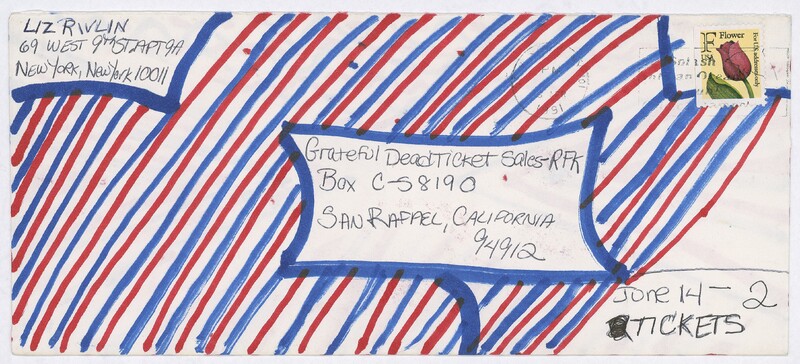 LIZ RIVLIN
69 WEST 9TH ST. APT 9A
NEW YORK, NEW YORK 10011
F Flower
USA
For U.S. addresses only
Grateful Dead Ticket Sales-RFK
Box C-S8190
SAN RAFAEL, CALIFORNIA
94912
June 14 - 2
TICKETS